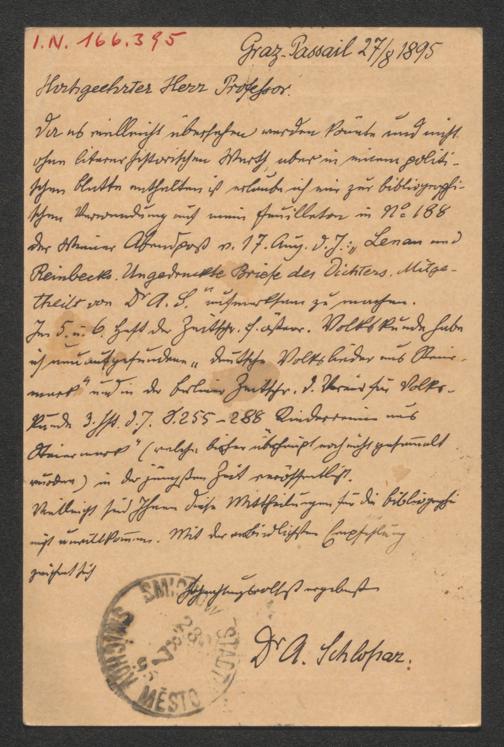 I.N. 166.395
Graz-Passail 27/8 1895
Hochgeehrter Herr Professor.
Da es vielleicht übersehen werden könnte und nicht
ohne literarhistorischen Werth, aber in einem politi-
schen Blatte enthalten ist erlaube ich mir zur bibliographi-
schen Verwendung auf mein Feuilleton in No 188
der Wiener Abendpost v. 17. Aug. d. J.: „Lenau und
Reinbeck. Ungedruckte Briefe des Dichters. Mitge-
theilt von Dr A. S." aufmerksam zu machen.
Im 5. u. 6. Heft der Zeitschr. f. österr. Volkskunde habe
ich neu aufgefundene „deutsche Volkslieder aus Steier-
mark" und in der Berliner Zeitschr. d. Verein für Volks-
kunde 3. Hft. d. J. S. 255-288 Kinderreime aus
Steiermark" (welche bisher überhaupt noch nicht gesammelt
wurden) in der jüngsten Zeit veröffentlicht.
Vielleicht sind Ihnen diese Mittheilungen für die bibliographi
nicht unwillkommen. Mit der verbindlichsten Empfehlung
zeichnet sich
hochachtungsvollst ergebenst
Dr A. Schlossar.
SMICHOW STADT
SMÍCHOV MĚSTO
28